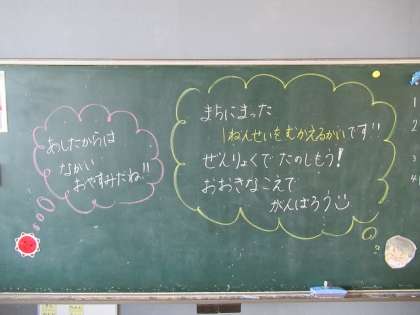 あしたからは
ながい
おやすみだね!!
まちにまった
1ねんせいをむかえるかいです!!
ぜんりょくでたのしもう!
おおきなこえで
がんばろう